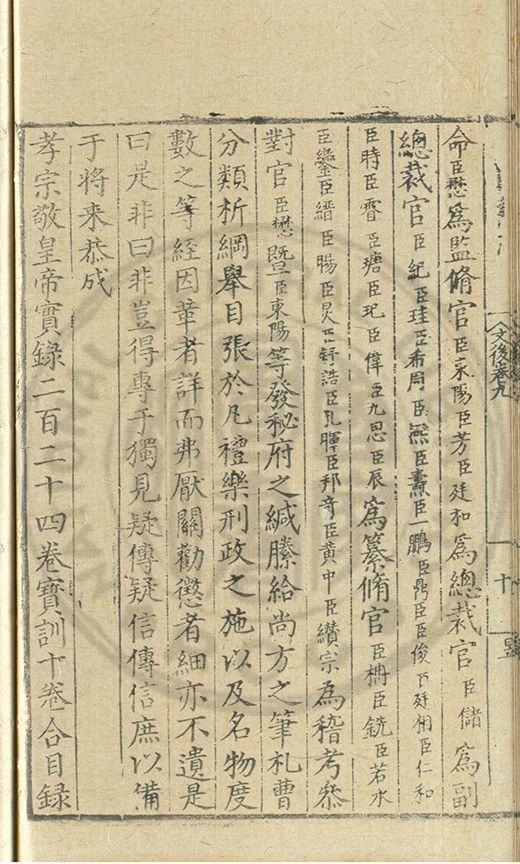 命臣懋爲監脩官臣東陽臣芳臣廷和爲總裁官臣儲爲副
總裁官臣紀臣珪臣希周臣熙臣燾臣一鵬臣鼎臣臣俊臣廷相臣仁和
臣時臣霄臣瑭臣玘臣偉臣九思臣辰爲纂脩官臣楠臣銑臣若水
臣鑾臣縉臣暘臣炅臣釬臣誥臣孔暉臣邦奇臣黄中臣纘宗爲稽考叅
對官臣懋暨臣東陽等發秘府之緘縢給尚方之筆札曹
分類析綱舉目張於凡禮樂刑政之施以及名物度
數之等經因革者詳而弗厭關勸懲者細亦不遺是
曰是非曰非豈得專于獨見疑傳疑信傳信庶以備
于將来恭成
孝宗敬皇帝實錄二百二十四卷寳訓十卷合目錄
文後卷九
十